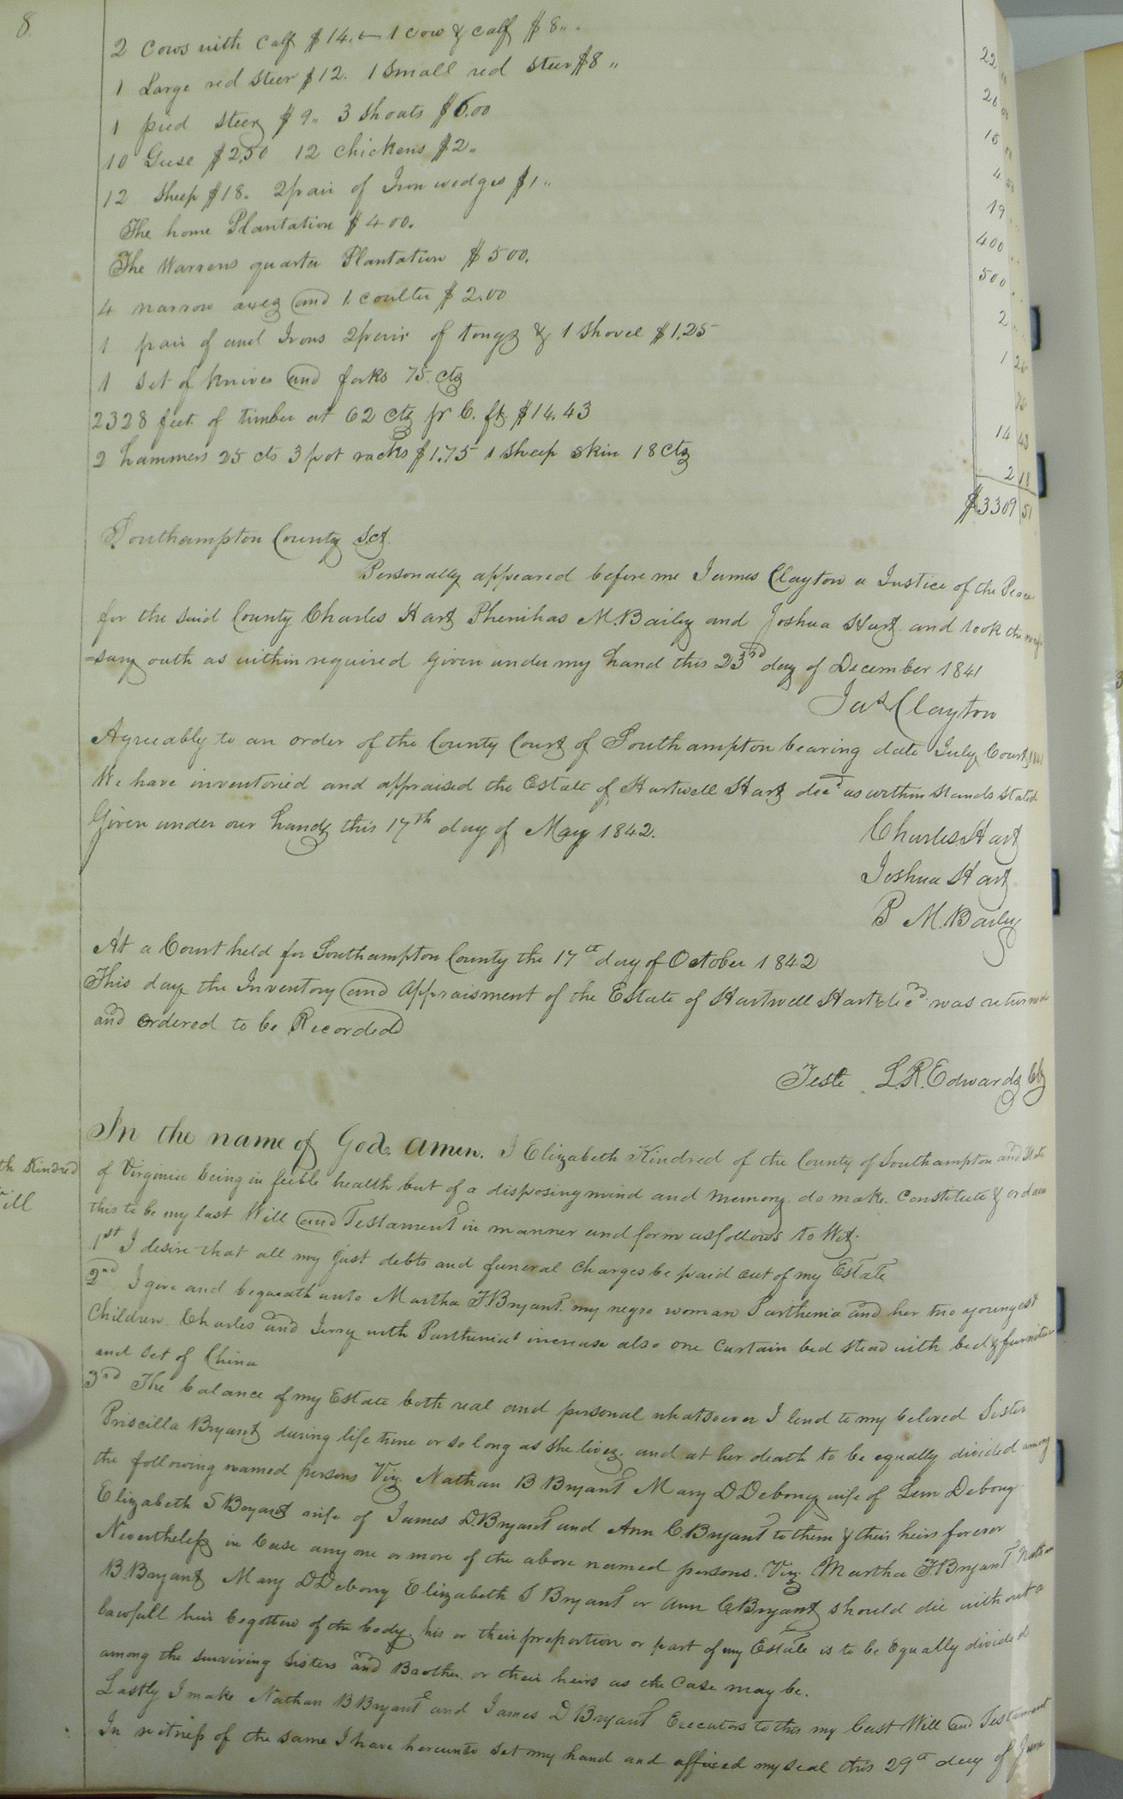 8
2 Cows with Calf $14. 1 Cow & Calf $8 22
1 Large red steer $12. 1 Small red steer $8 20
1 pied steer $9. 3 Shoats $6.00 15
10 Geese $2.50 12 Chickens $2. 4 50
12 Sheep $18. 2 pair of Iron wedges $1 19
The home Plantation $400. 400
The Warrens quarter Plantation $500. 500
4 narrow axes and 1 coulter $2.00 2
1 pair of and Irons 2 pair of tongs & 1 Shovel $1.25 1 25
1 Set of knives and forks 75 cts
2328 feet of timber at 62 cts pr C. ft $14.43 14 43
2 hammers 25 cts 3 pot racks $1.75 1 Sheep skin 18 cts 2 18
$3309 51
Southampton County Sct.
Personally appeared before me James Clayton a Justice of the Peace
for the said County Charles Hart Phenihas M. Bailey and Joshua Hart and took the neces
-sary oath as within required Given under my hand this 23rd day of December 1841
Jas Clayton
Agreeably to an order of the County Court of Southampton bearing date July Court 1841
We have inventoried and appraised the Estate of Hartwell Hart decd as within stands stated
Given under our hands this 17th day of May 1842.
Charles Hart
Joshua Hart
P M. Bailey
At a Court held for Southampton County the 17th day of October 1842
This day the Inventory and Appraisment of the Estate of Hartwell Hart decd was returned
and ordered to be Recorded
Teste L. R. Edwards Clk
th Kindred
ill
In the name of God amen. I Elizabeth Kindred of the County of Southampton and State
of Virginia being in feeble health but of a disposing mind and memory do make Constitute & ordain
this to be my last Will and Testament in manner and form as follows to Wit.
1st I desire that all my just debts and funeral Charges be paid out of my Estate
2nd I give and bequeath unto Martha F Bryant my negro woman Parthenia and her two youngest
Children Charles and Jerry with Parthenias increase also one Curtain bed stead with bed & furniture
and Set of China
3rd The balance of my Estate both real and personal whatsoever I lend to my beloved Sister
Priscilla Bryant during life time or so long as she lives and at her death to be equally divided among
the following named persons Viz. Nathan B Bryant Mary D Deboney wife of Lem Debony
Elizabeth S Bryant wife of James D. Bryant and Ann C. Bryant to them & their heirs forever
Nevertheless in Case any one or more of the above named persons. Viz Martha F Bryant Nathan
B Bryant Mary D Debony Elizabeth S Bryant or Ann C Bryant should die without a
lawfull heir begotten of the body his or their proportion or part of my Estate is to be Equally divided
among the surviving Sisters and Brother or their heirs as the Case may be.
Lastly I make Nathan B Bryant and James D Bryant Executors to this my last Will and Testament
In witness of the same I have hereunto set my hand and affixed my seal this 29th day of June